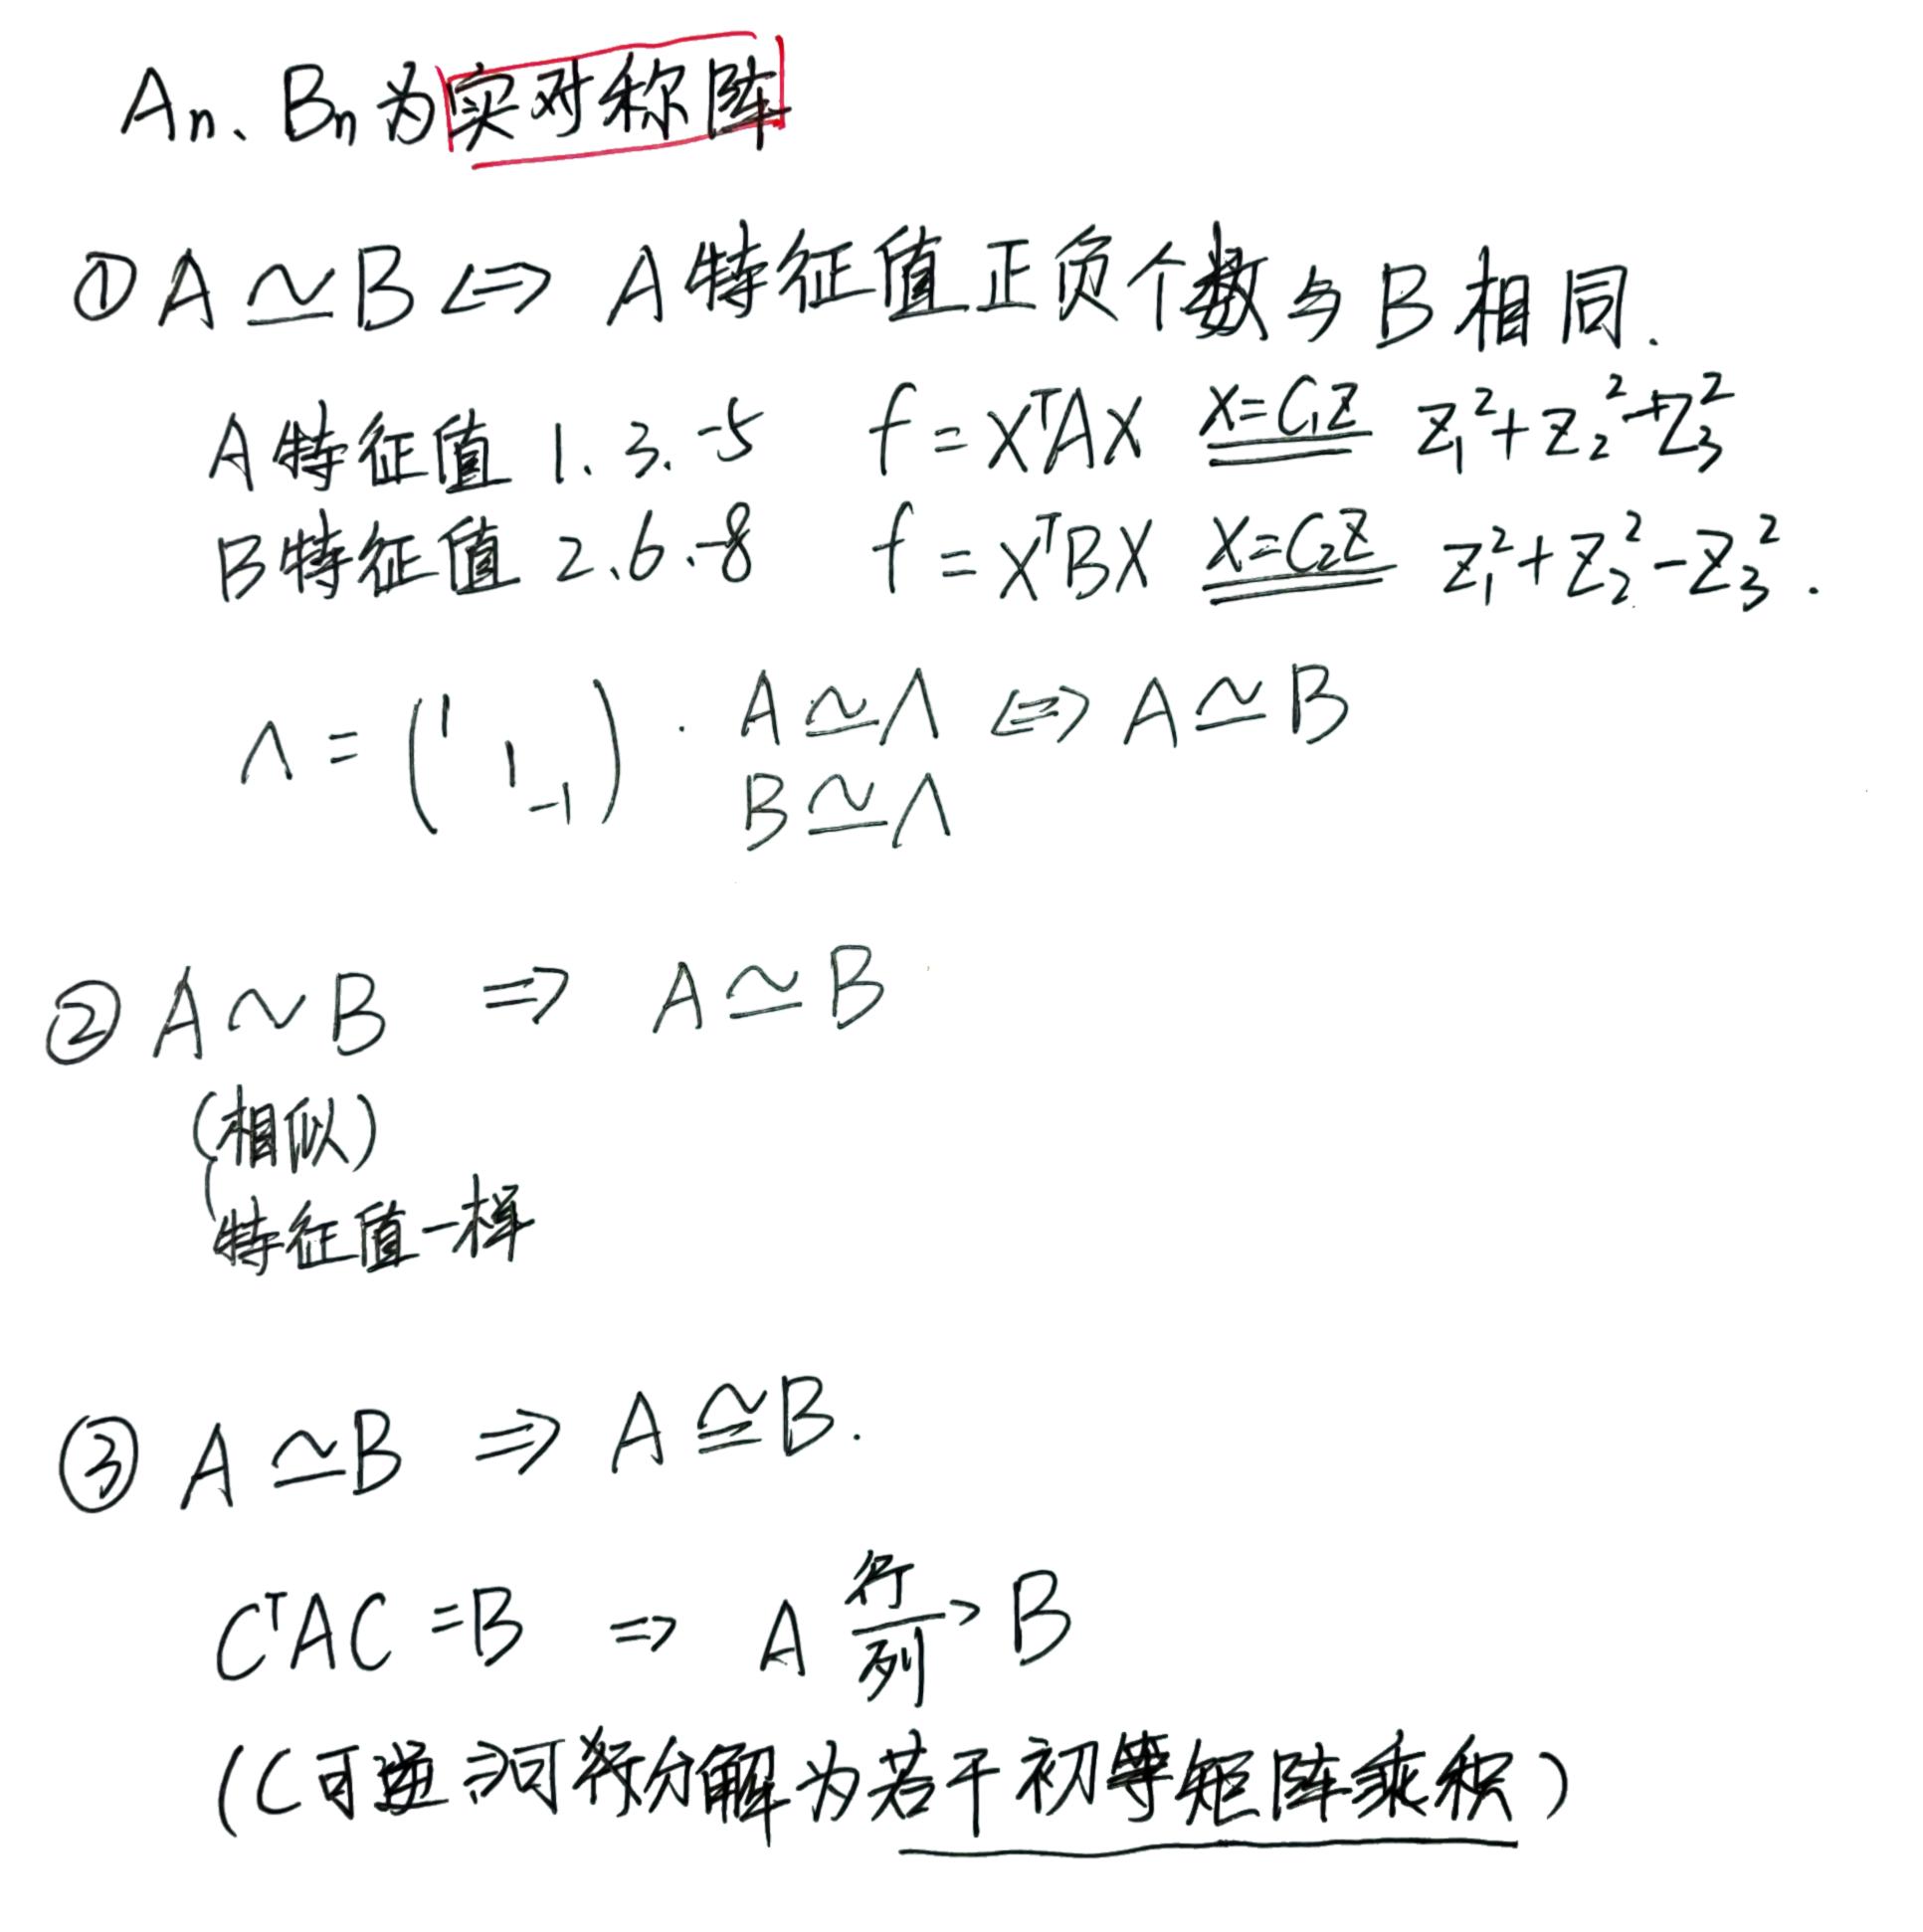 An、Bn为实对称阵
①A≃B⇔A特征值正负个数与B相同.
A特征值 1. 3. -5 f=xᵀAx x=C₁z z₁²+z₂²-z₃²
B特征值 2、6、-8 f=xᵀBx x=C₂z z₁²+z₂²-z₃².
Λ=(1 1 -1). A≃Λ ⇔ A≃B
B≃Λ
②A∼B ⇒ A≃B
(相似)
特征值一样
③A≃B ⇒ A≅B.
CᵀAC=B ⇒ A 行/列→ B
(C可逆⇒可拆分解为若干初等矩阵乘积)